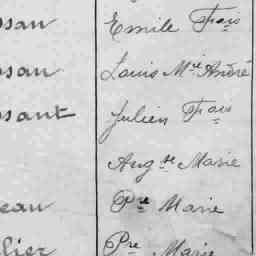 ssan Emile Fçois
ssan Louis Mie André
ssant Julien Fçois
Aug te Marie
eau Pre Marie
lier Pre Marie